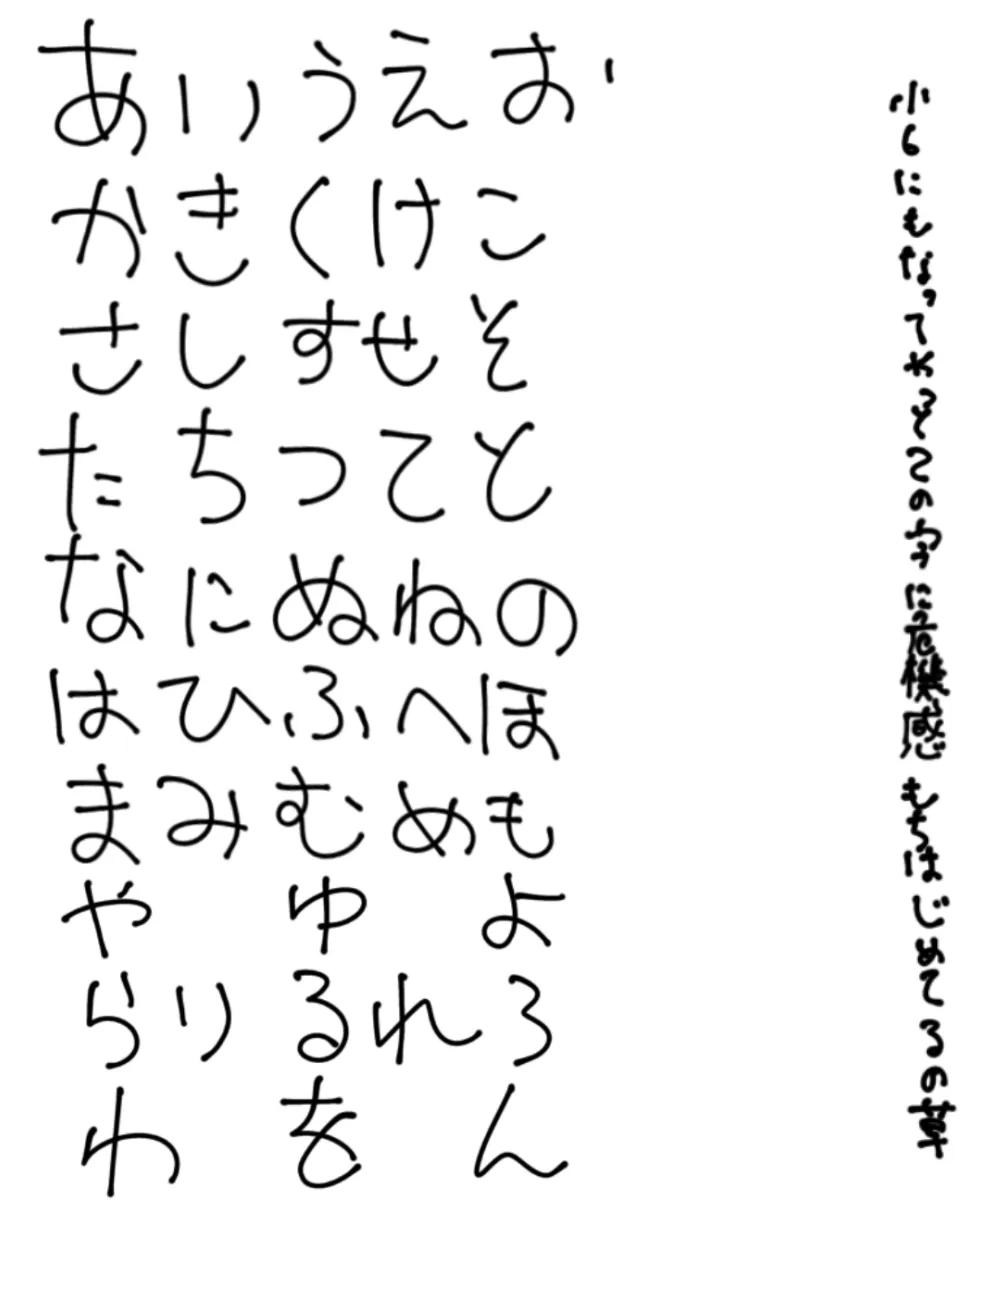 あいうえお
かきくけこ
さしすせそ
たちつてと
なにぬねの
はひふへほ
まみむめも
やゆよ
らりるれろ
わをん
小6にもなってやっとこの字に危機感もちはじめてるの草